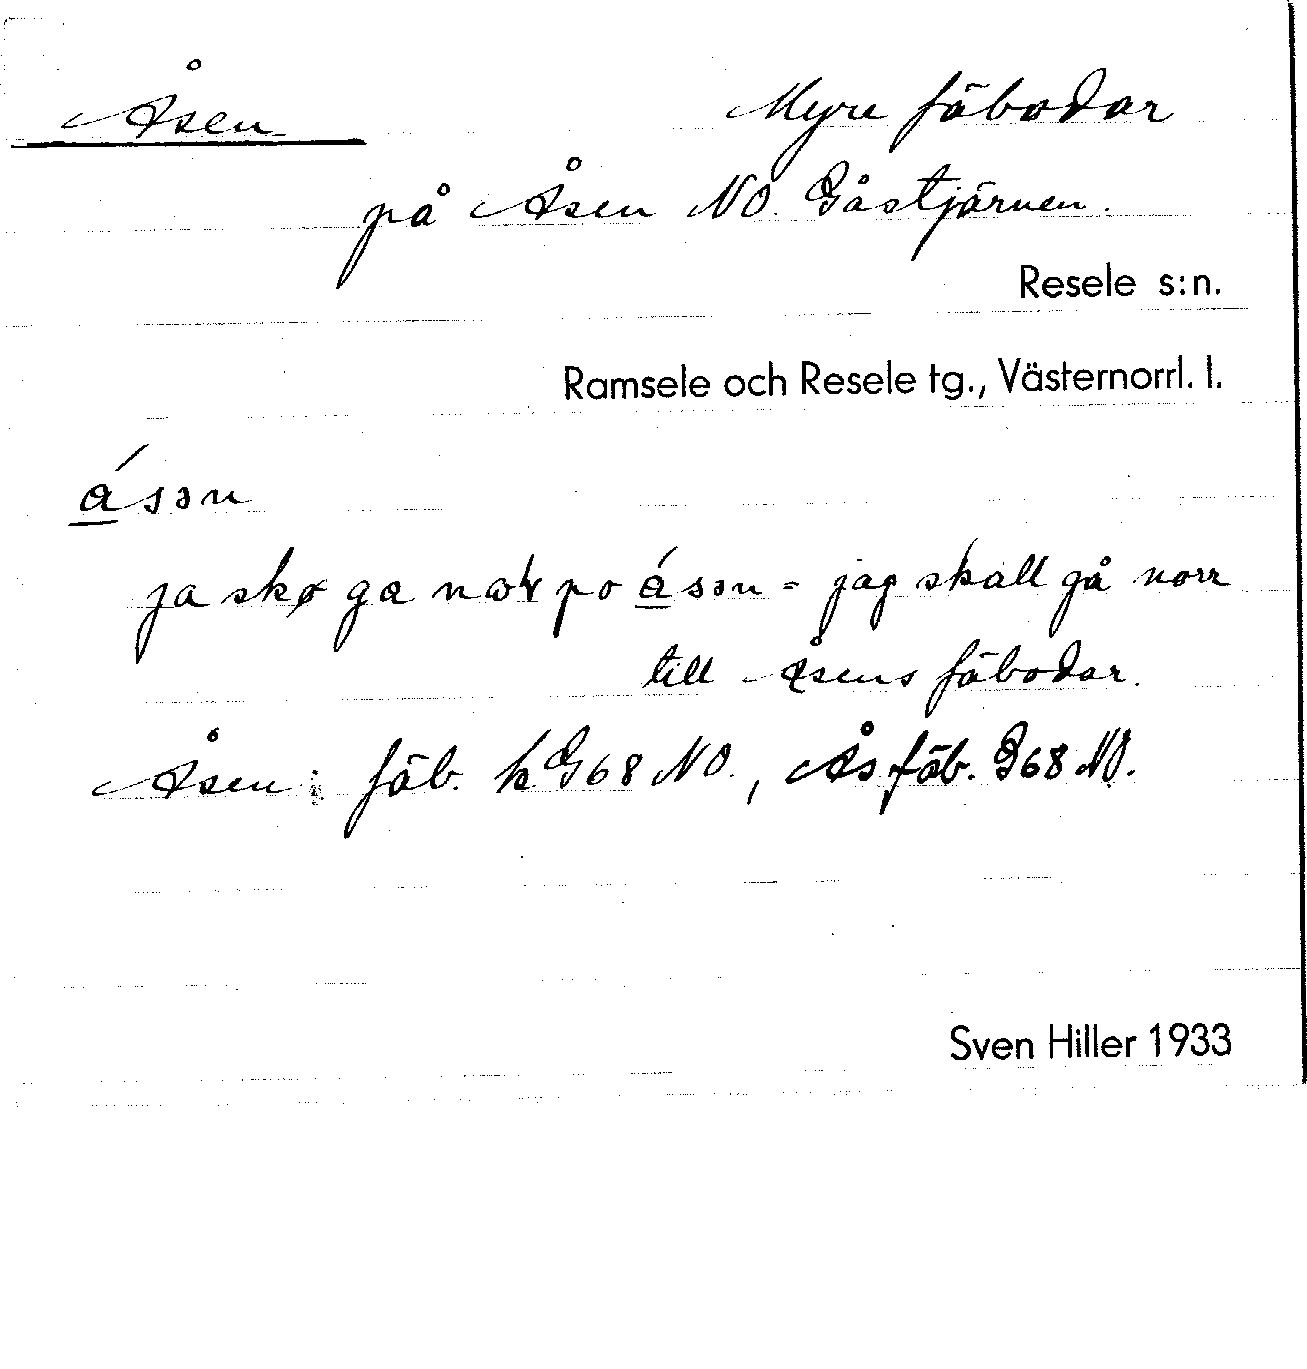 Åsen
Myre fäbodar
på Åsen NO. Gåstjärnen.
Resele s:n.
Ramsele och Resele tg., Västernorrl. l.
á̱sən
ja skø ga po á̱sən = jag skall gå norr
till Åsens fäbodar.
Åsen: fäb. k G68 NO., Ås fäb. G68 NO.
Sven Hiller 1933